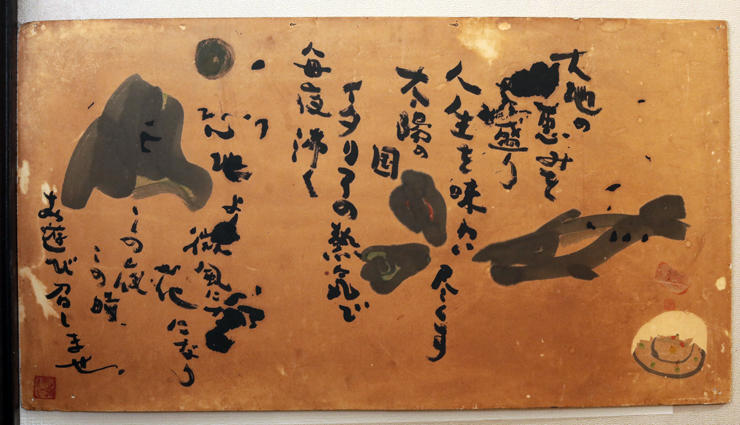 大地の
恵みを
盛り
人生を味わい尽くす
太陽の
国
イタリアの熱気で
毎夜沸く
心地よ
微風に
花になり
この夜
この時
お遊び召しませ